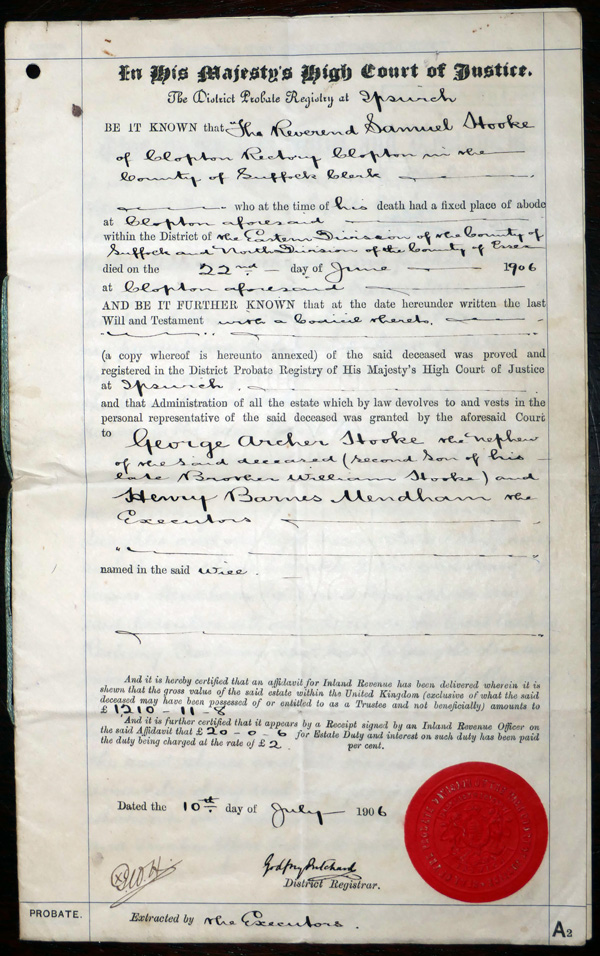 In His Majesty's High Court of Justice.
The District Probate Registry at Ipswich
BE IT KNOWN that "The Reverend Samuel Hooke
of Clopton Rectory Clopton in the
County of Suffolk Clerk
who at the time of his death had a fixed place of abode
at Clopton aforesaid
within the District of the Eastern Division of the County of
Suffolk and North Division of the County of Essex
died on the 22nd day of June 1906
at Clopton aforesaid
AND BE IT FURTHER KNOWN that at the date hereunder written the last
Will and Testament with a Codicil thereto.
(a copy whereof is hereunto annexed) of the said deceased was proved and
registered in the District Probate Registry of His Majesty's High Court of Justice
at Ipswich.
and that Administration of all the estate which by law devolves to and vests in the
personal representative of the said deceased was granted by the aforesaid Court
to George Archer Hooke the nephew
of the said deceased (second son of his
late Brother William Hooke) and
Henry Barnes Mendham the
Executors
named in the said Will.
And it is hereby certified that an affidavit for Inland Revenue has been delivered wherein it is
shewn that the gross value of the said estate within the United Kingdom (exclusive of what the said
deceased may have been possessed of or entitled to as a Trustee and not beneficially) amounts to
£ 1210 - 11 - 8
And it is further certified that it appears by a Receipt signed by an Inland Revenue Officer on
the said Affidavit that £ 20 - 0 - 6 for Estate Duty and interest on such duty has been paid
the duty being charged at the rate of £ 2 per cent.
Dated the 10th day of July 1906
Godfrey Pritchard
District Registrar.
PROBATE.
Extracted by the Executors.
A2